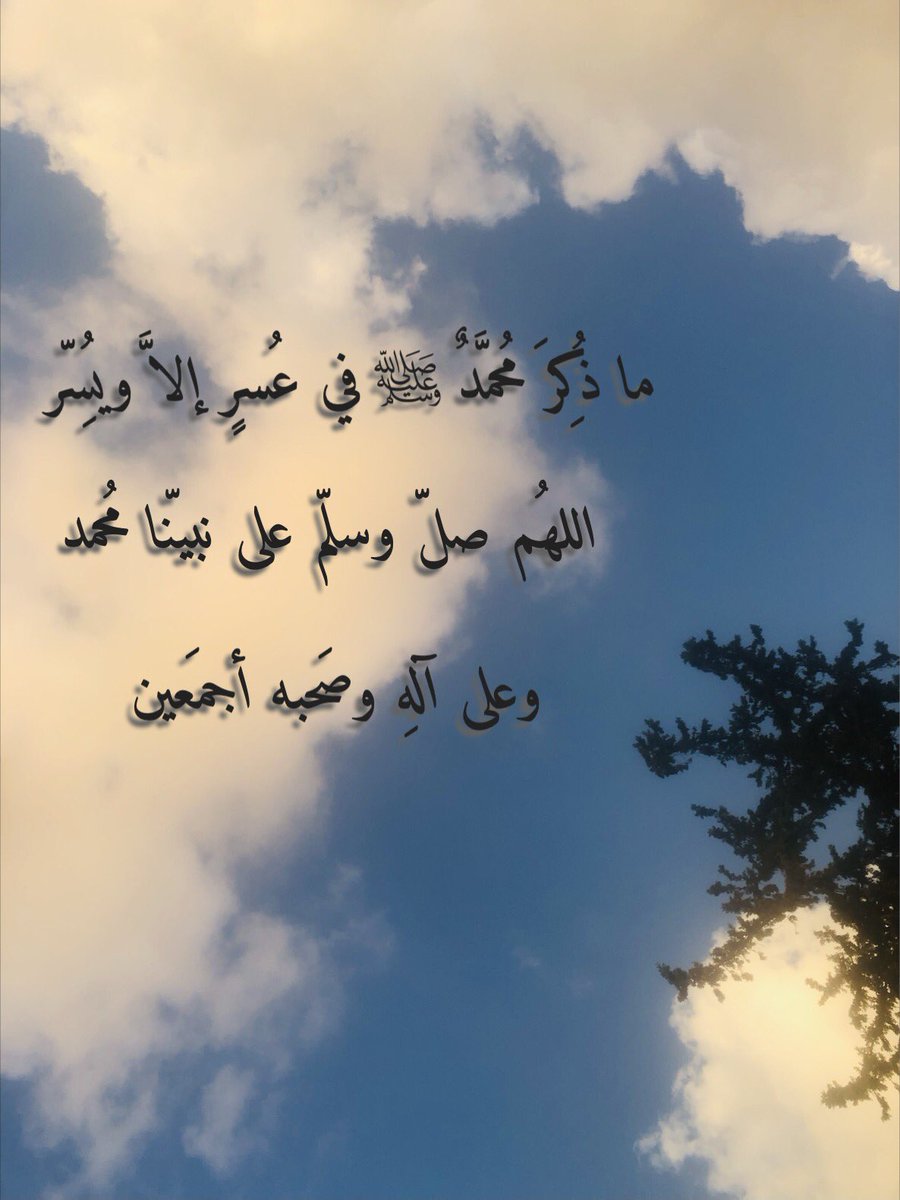 ما ذُكِرَ مُحمَّدٌ ﷺ في عُسرٍ إلاَّ ويسُِرّ
اللهُم صلّ وسلّم على نبينّا مُحمد
وعلى آلهِ وصَحبه أجمَعين